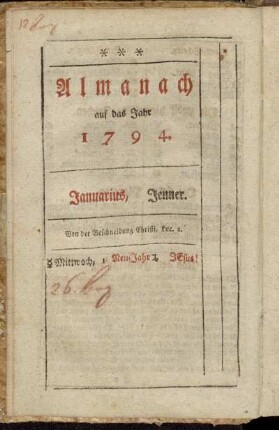 * * *
Almanach
auf das Jahr
1794.
Januarius, Jenner.
Von der Beschneidung Christi. Luc. 2.
☿ Mittwoch, 1 Neu-Jahr ♑ JEsus!